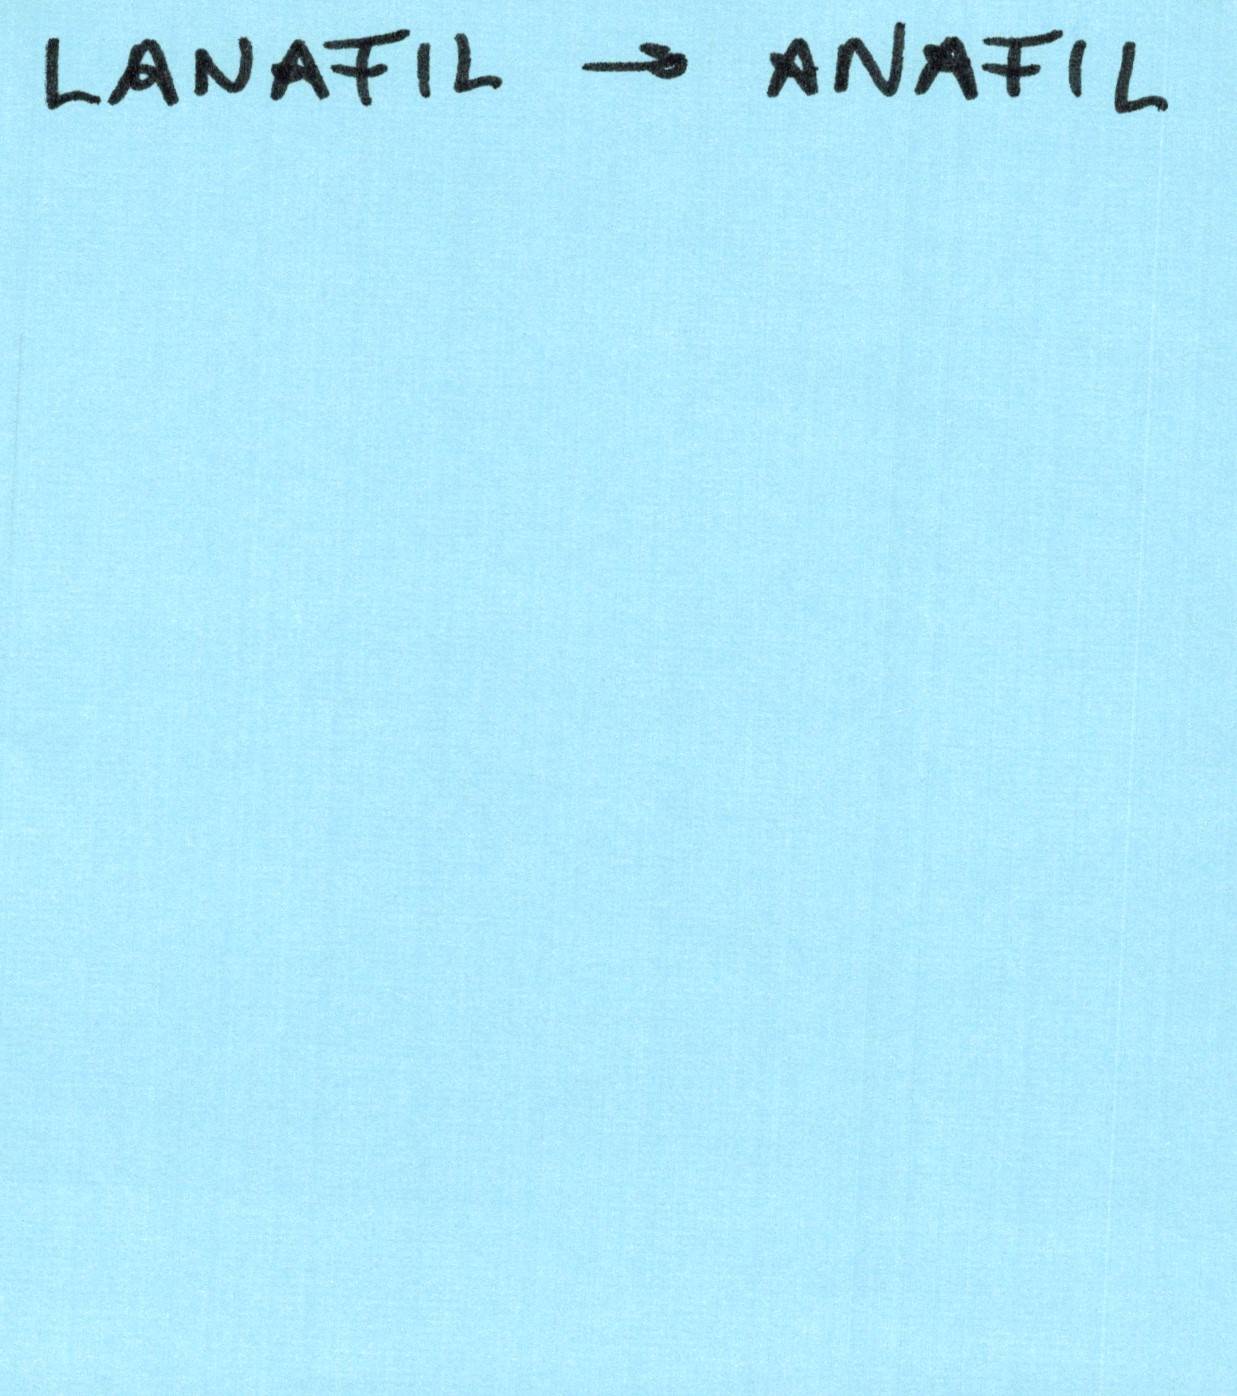 LANAFIL → ANAFIL